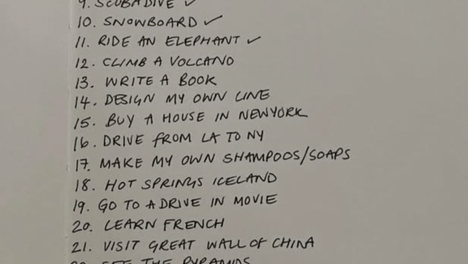 9. SCUBA DIVE ✓
10. SNOWBOARD ✓
11. RIDE AN ELEPHANT ✓
12. CLIMB A VOLCANO
13. WRITE A BOOK
14. DESIGN MY OWN LINE
15. BUY A HOUSE IN NEWYORK
16. DRIVE FROM LA TO NY
17. MAKE MY OWN SHAMPOOS/SOAPS
18. HOT SPRINGS ICELAND
19. GO TO A DRIVE IN MOVIE
20. LEARN FRENCH
21. VISIT GREAT WALL OF CHINA
22. SEE THE PYRAMIDS